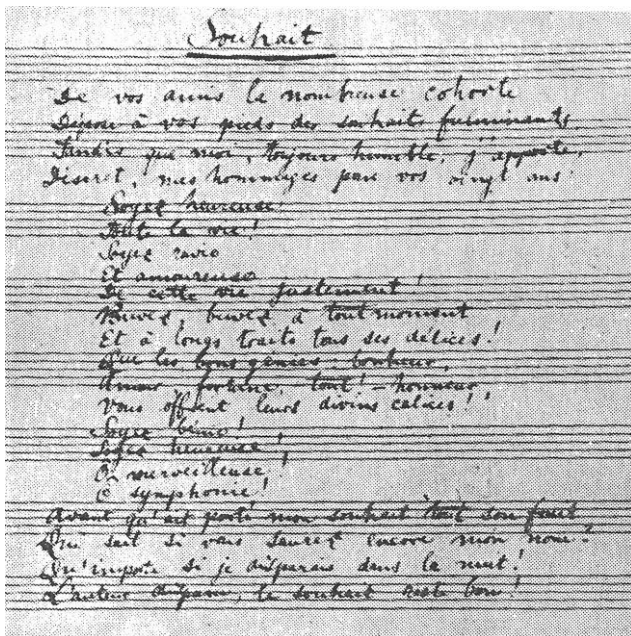 Souhait
De vos amis la nombreuse cohorte
Dépose à vos pieds des souhaits fulminants,
Tandis que moi, toujours humble, j'apporte,
Discret, mes hommages pour vos vingt ans.
Soyez heureuse
Toute la vie!
Soyez ravie
Et amoureuse
De cette vie justement!
Buvez, buvez à tout moment
Et à longs traits tous ses délices!
Que les bons génies - bonheur,
Amour, fortune, tout! - honneur,
Vous offrent leurs divins calices!
Soyez bénie!
Soyez heureuse!
Ô merveilleuse!
Ô symphonie!
Avant qu'ait porté mon souhait tout son fruit
Qui sait si vous saurez encore mon nom?
Qu'importe si je disparais dans la nuit!
L'auteur disparu, le souhait reste bon!